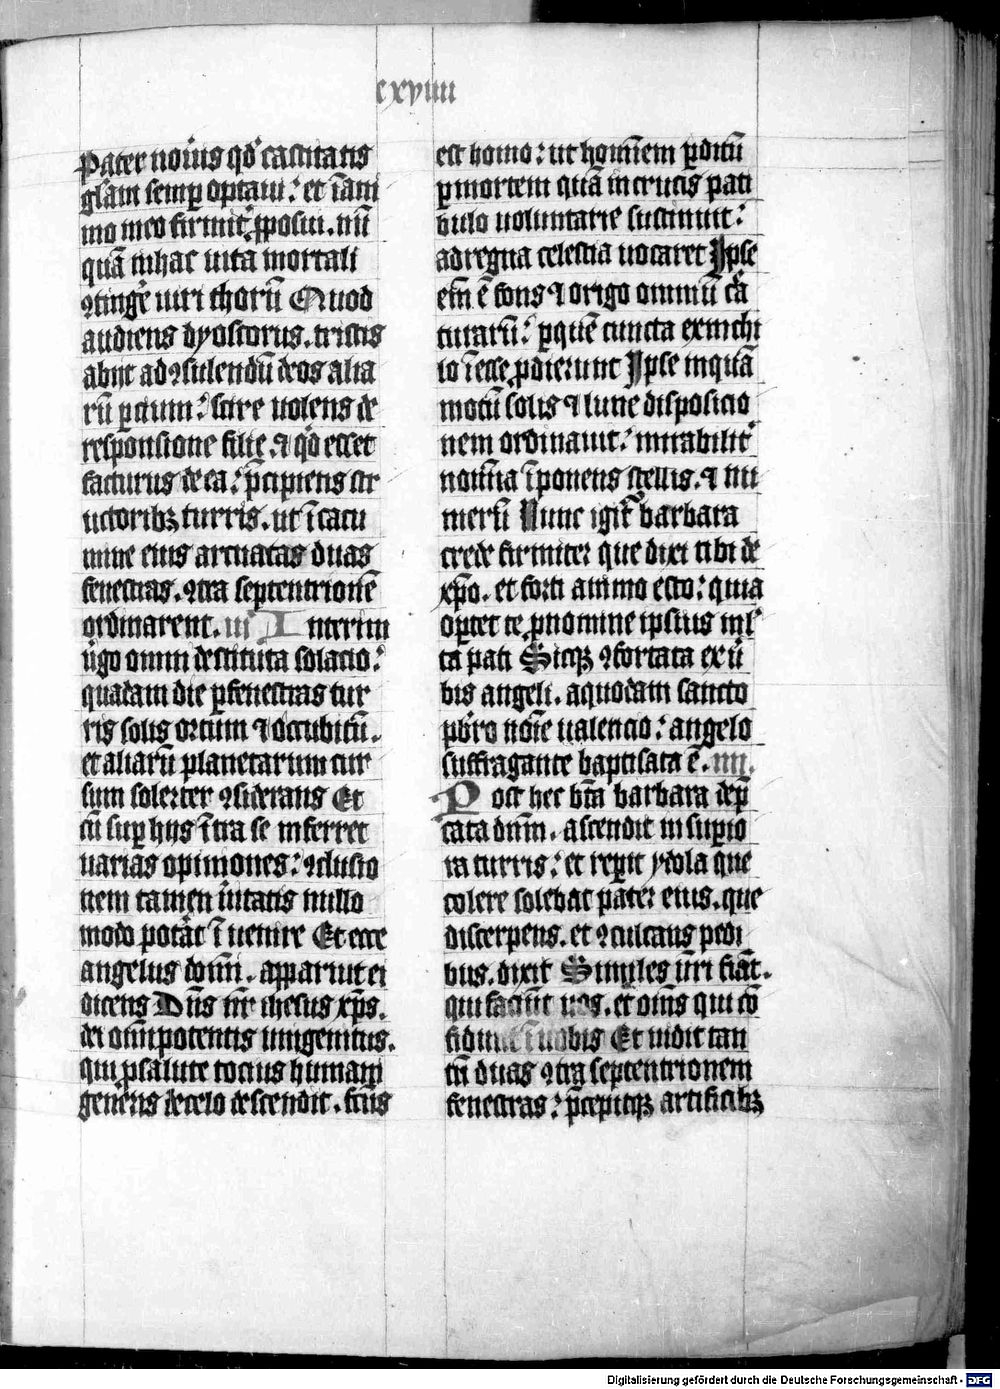 cxviiii
Pater nouis̄ qd̓ castitatis
glām semꝑ optaui: et ī ani
mo meo firmit̓ ꝓposui. nū
quā in hac uita mortali
ꝯtinge᷑ uiri thorū Quod
audiens dyoscorus. tristis
abijt ad ꝯsulendū deos alia
rū ꝑcium: scire uolens de
responsione filie. ⁊ qd̓ esset
facturus de ea: p̄cipiens str
uctoribꝫ turris. ut ī cacu
mine eius arcuatas duas
fenestras. ꝯtra septentrionē
ordinarent. iij Interim
u̓go omni destituta solacio:
quadam die ꝑ fenestras tur
ris solis ortum ⁊ occubitū.
et aliarū planetarum cur
sum solerter ꝯsiderans Et
cū suꝑ hijs ītra se inferret
uarias opiniones: ꝯclusio
nem tamen u̓itatis nullo
modo pot̓at īuenire Et ecce
angelus domī. apparuit ei
dicens Dn̄s nr̄ ihesus xp̄s.
dei om̄ipotentis unigenitus.
qui ꝓ salute tocius humani
gen̓is de celo descendit. fc̄us
est homo: ut hominem ꝑditū
ꝑ mortem quā in crucis pati
bulo uoluntarie sustinuit:
ad regna celestia uocaret Ipse
em̄ ē fons ⁊ origo omniū c̓a
turarū: ꝑ quē cuncta ex nichi
lo ī esse ꝓdierunt Ipse inquā
motū solis ⁊ lune disposicio
nem ordinauit: mirabilit̓
nomīa īponens stellis. ⁊ nu
merū Nunc igit᷑ barbara
crede firmiter que dixi tibi de
xp̄o. et forti animo esto: quia
oꝑtet te ꝓ nomine ipsius ml̓
ta pati Sicqꝫ ꝯfortata ex u̓
bis angeli. a quodam sancto
pb̄ro noīe ualencio: angelo
suffragante baptisata ē. iiij.
Post hec bt̄a barbara dep̄
cata dnm̄. ascendit in suꝑio
ra turris: et reꝑit ydola que
colere solebat pater eius. que
discerpens. et ꝯculcans pedi
bus. dixit Similes ur̄i fiāt.
qui faciūt uos. et om̄s qui cō
fidunt ī uobis Et uidit tan
tū duas ꝯtra septentrionem
fenestras: p̄cepitqꝫ artificibꝫ
Digitalisierung gefördert durch die Deutsche Forschungsgemeinschaft - DFG